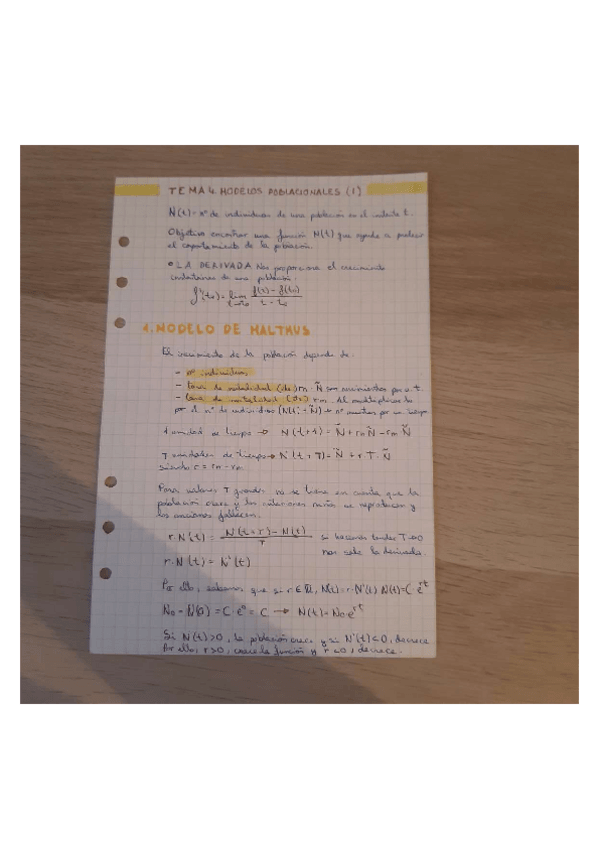 TEMA 4. MODELOS POBLACIONALES (I)
N(t) = nº de individuos de una población en el instante t.
Objetivo encontrar una función N(t) que ayude a predecir
el comportamiento de la población.
• LA DERIVADA Nos proporciona el crecimiento
instantáneo de una población:
f'(t₀) = lim f(t) - f(t₀) / t - t₀
1. MODELO DE MALTHUS
El crecimiento de la población depende de:
- nº individuos
- tasa de natalidad (de) rn · Ñ son nacimientos por u.t.
- tasa de mortalidad rm. Al multiplicarla
por el nº de individuos (N(t) = Ñ) → nº muertes por tiempo
1 unidad de tiempo → N(t+1) = Ñ + rn Ñ - rm Ñ
T unidades de tiempo → N(t+T) = Ñ + r T · Ñ
siendo r = rn - rm
Para valores T grandes no se tiene en cuenta que la
población crece y los se reproducen y
los ancianos fallecen.
r · N(t) = N(t+T) - N(t) / T si hacemos tender T→0
nos sale la derivada.
r · N(t) = N'(t)
Por ello, sabemos que si r ∈ N(t) = C · e^rt
N₀ = N(0) = C · e⁰ = C → N(t) = N₀ · e^rt
Si N'(t) > 0, la población crece y si N'(t) < 0, decrece
Por ello, r > 0, crece la función y r < 0, decrece.